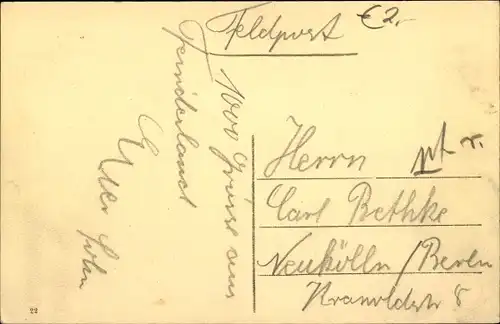 Feldpost
€2,-
1000 Grüsse aus
Feindesland
Euer Sohn
Herrn
Carl Bethke
Neukölln / Berlin
Kranoldstr 8
22